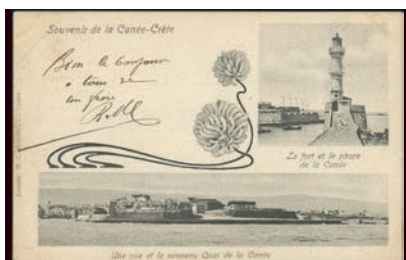 Souvenir de la Canée-Crète
Bien le bonjour
à tous de
R.M.
Le fort et le phare
de la Canée
Une vue et le nouveau Quai de la Canée